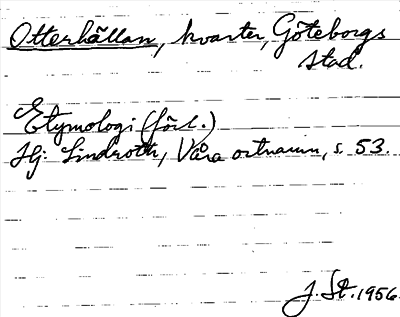 Otterhällan, kvarter, Göteborgs
stad.
Etymologi (förl.)
Hj. Lindroth, Våra ortnamn, s. 53.
J. St. 1956.